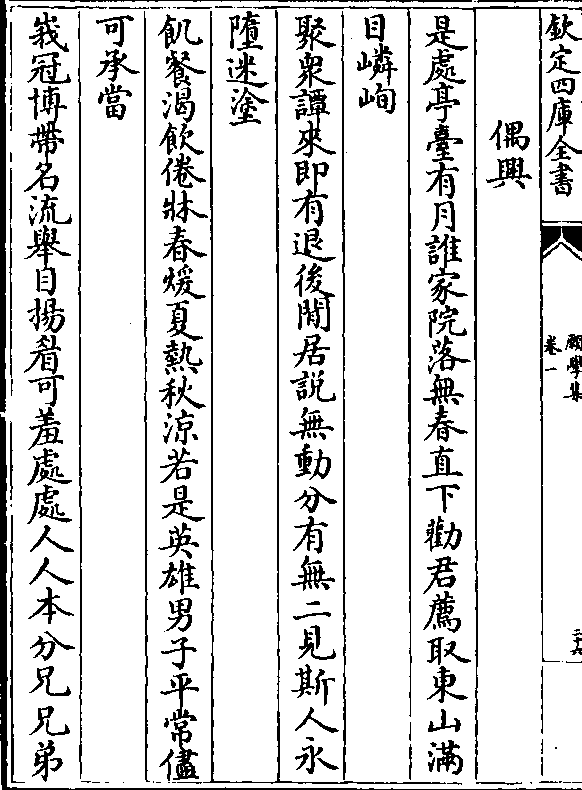 欽定四庫全書
願學集
卷一
三十六
偶興
是處亭臺有月誰家院落無春直下勸君薦取東山滿
目嶙峋
聚衆譚來即有退後閒居説無動分有無二見斯人永
墮迷塗
飢餐渴飲倦牀春煖夏熱秋涼若是英雄男子平常儘
可承當
峩冠博帶名流舉目揚眉可羞處處人人本分兄兄弟